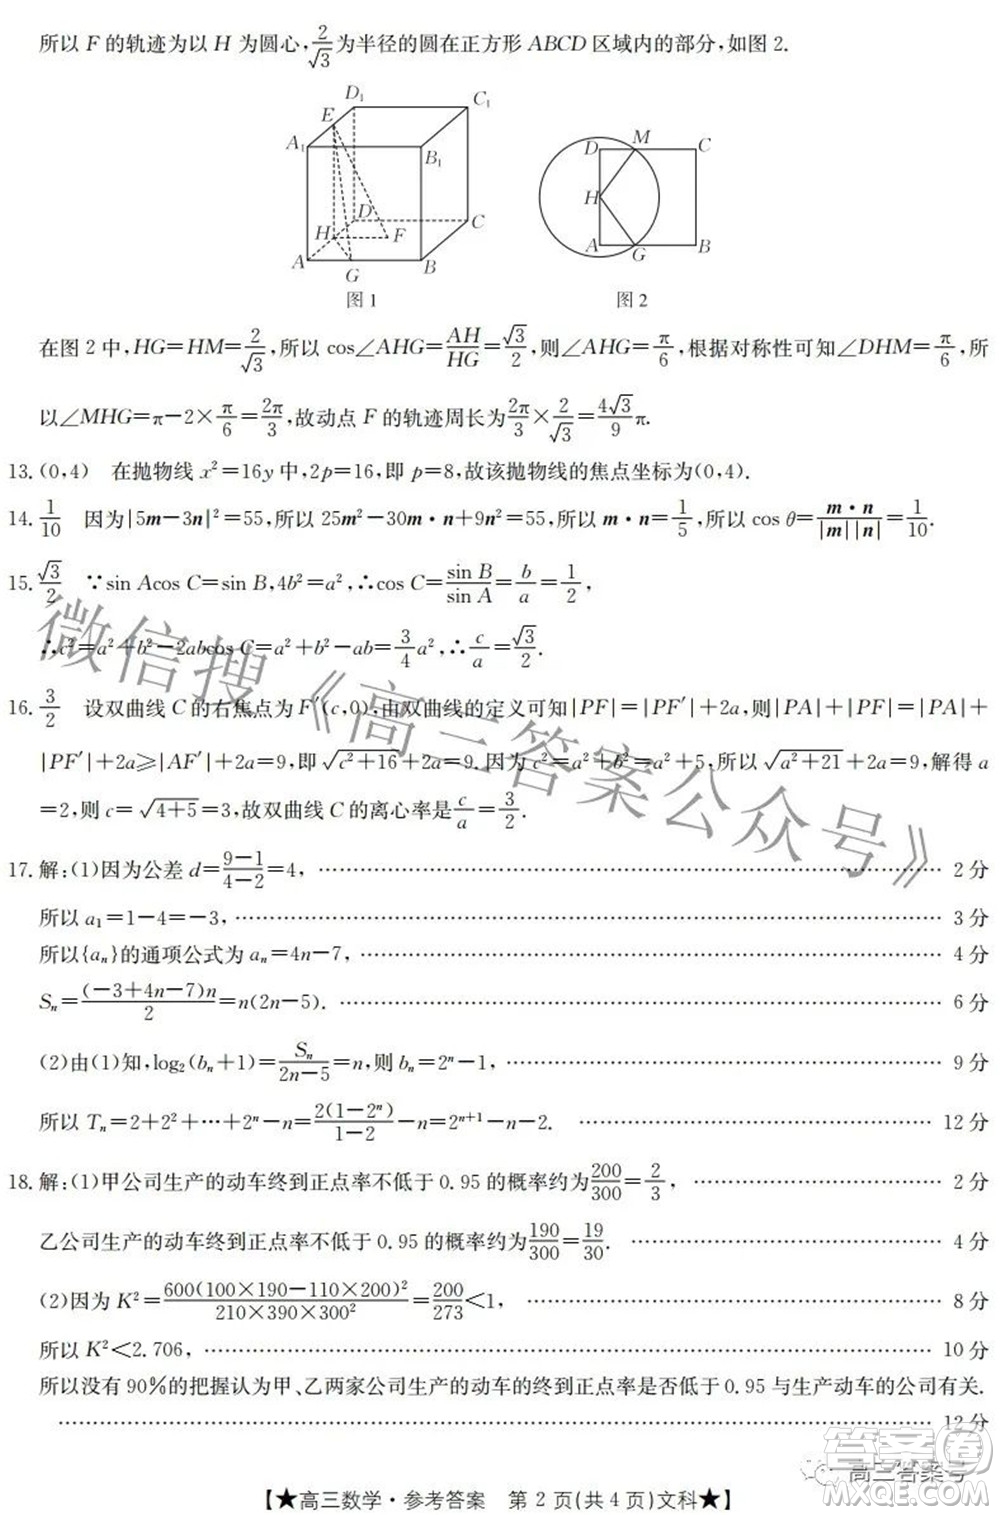 所以 F 的轨迹为以 H 为圆心,2/√3为半径的圆在正方形 ABCD 区域内的部分,如图 2.
D₁ C₁ E A₁ B₁ D C H F A G B
图 1
D M C H A G B
图 2
在图 2 中,HG=HM=2/√3,所以 cos∠AHG=AH/HG=√3/2,则∠AHG=π/6,根据对称性可知∠DHM=π/6,所
以∠MHG=π−2×π/6=2π/3,故动点 F 的轨迹周长为2π/3×2/√3=4√3/9π.
13.(0,4) 在抛物线 x²=16y 中,2p=16,即 p=8,故该抛物线的焦点坐标为(0,4).
14.1/10 因为|5m−3n|²=55,所以 25m²−30m·n+9n²=55,所以 m·n=1/5,所以 cos θ=m·n/|m||n|=1/10.
15.√3/2 ∵sin Acos C=sin B,4b²=a²,∴cos C=sin B/sin A=b/a=1/2,
∴c²=a²+b²−2abcos C=a²+b²−ab=3/4a²,∴c/a=√3/2.
16.3/2 设双曲线 C 的右焦点为 F′(c,0),由双曲线的定义可知|PF|=|PF′|+2a,则|PA|+|PF|=|PA|+
|PF′|+2a≥|AF′|+2a=9,即√(c²+16)+2a=9.因为 c²=a²+b²=a²+5,所以√(a²+21)+2a=9,解得 a
=2,则 c=√(4+5)=3,故双曲线 C 的离心率是c/a=3/2.
17.解:(1)因为公差 d=(9−1)/(4−2)=4, …… 2 分
所以 a₁=1−4=−3, …… 3 分
所以{aₙ}的通项公式为 aₙ=4n−7, …… 4 分
Sₙ=(−3+4n−7)n/2=n(2n−5). …… 6 分
(2)由(1)知,log₂(bₙ+1)=Sₙ/(2n−5)=n,则 bₙ=2ⁿ−1, …… 9 分
所以 Tₙ=2+2²+…+2ⁿ−n=2(1−2ⁿ)/(1−2)−n=2ⁿ⁺¹−n−2. …… 12 分
18.解:(1)甲公司生产的动车终到正点率不低于 0.95 的概率约为200/300=2/3, …… 2 分
乙公司生产的动车终到正点率不低于 0.95 的概率约为190/300=19/30. …… 4 分
(2)因为 K²=600(100×190−110×200)²/(210×390×300²)=200/273<1, …… 8 分
所以 K²<2.706, …… 10 分
所以没有 90%的把握认为甲、乙两家公司生产的动车的终到正点率是否低于 0.95 与生产动车的公司有关.
…… 12 分
【★高三数学·参考答案 第 2 页(共 4 页)文科★】
微信搜《高三答案公众号》
高三答案号
答案圈